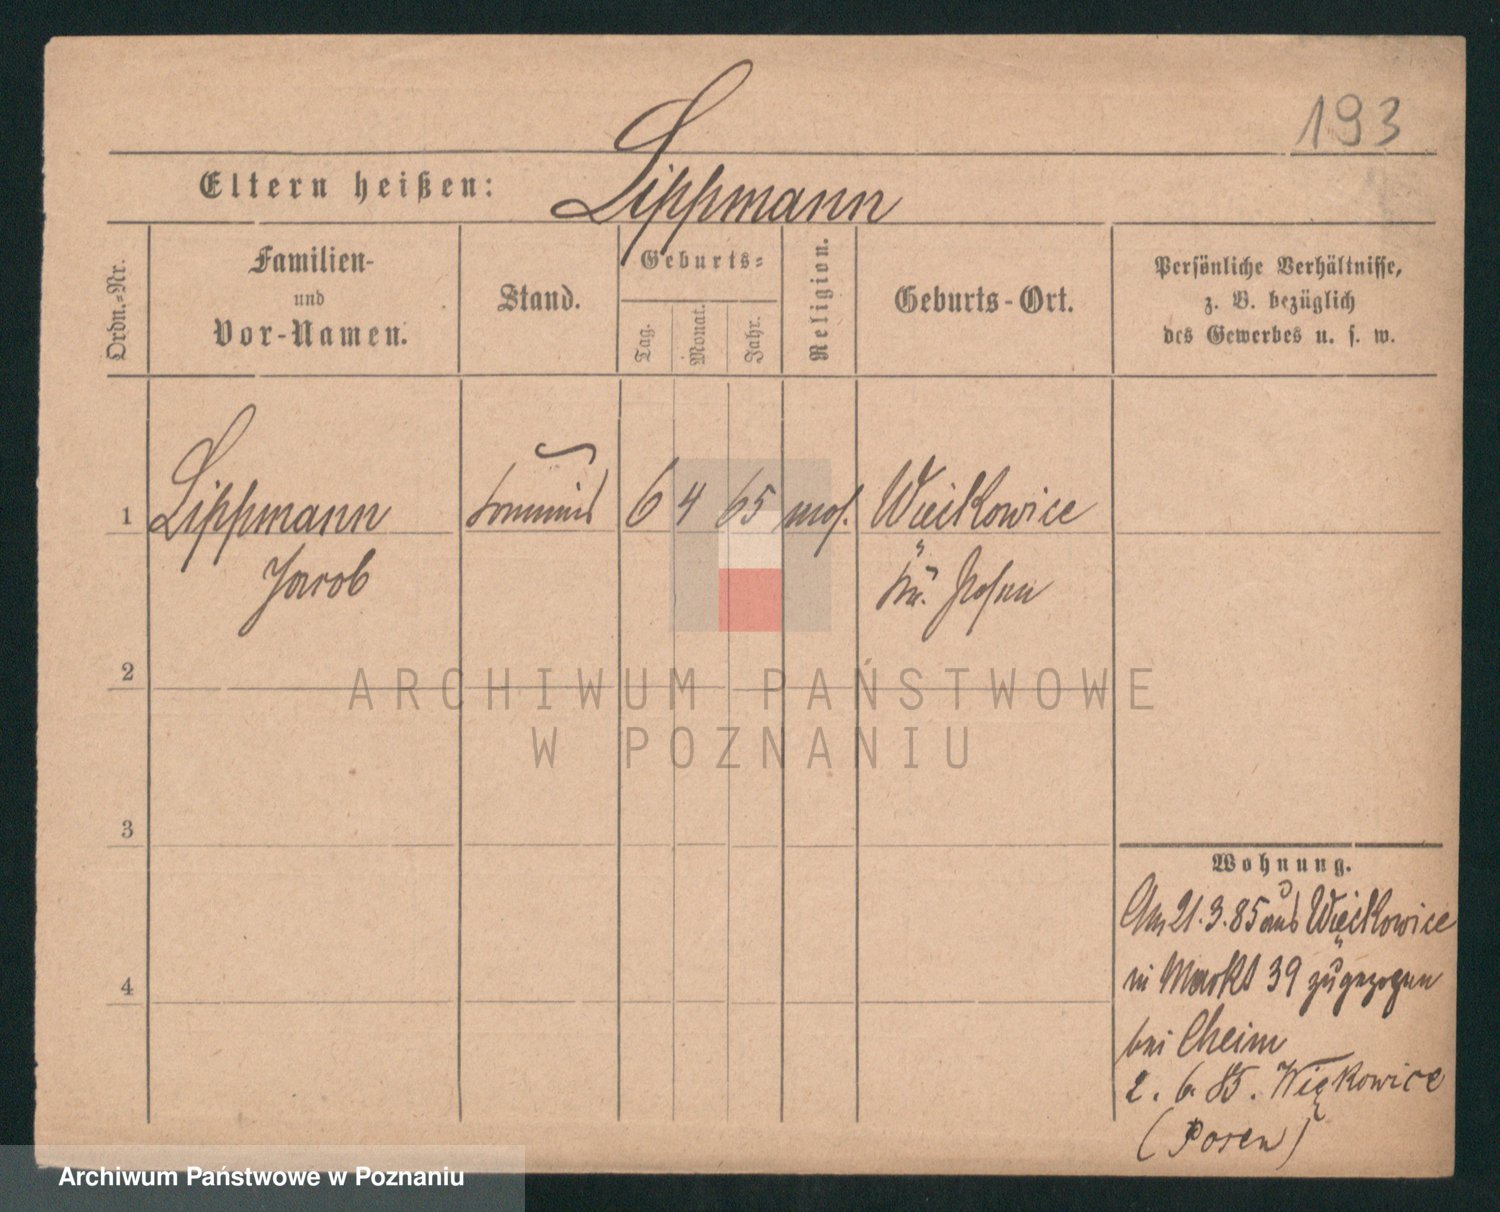 193
Eltern heißen: Lippmann
Ordn.-Nr.
Familien-
und
Vor-Namen.
Stand.
Geburts-
Tag.
Monat.
Jahr.
Religion.
Geburts-Ort.
Persönliche Verhältnisse,
z. B. bezüglich
des Gewerbes u. s. w.
1 Lippmann Commis 6 4 65 mos. Więckowice
Jacob Kr. Posen
2
ARCHIWUM PAŃSTWOWE
W POZNANIU
3
Wohnung.
Am 21.3.85 aus Więckowice
in Markt 39 zugezogen
bei Cheim
2. 6. 85. Więkowice
(Posen)
4
Archiwum Państwowe w Poznaniu